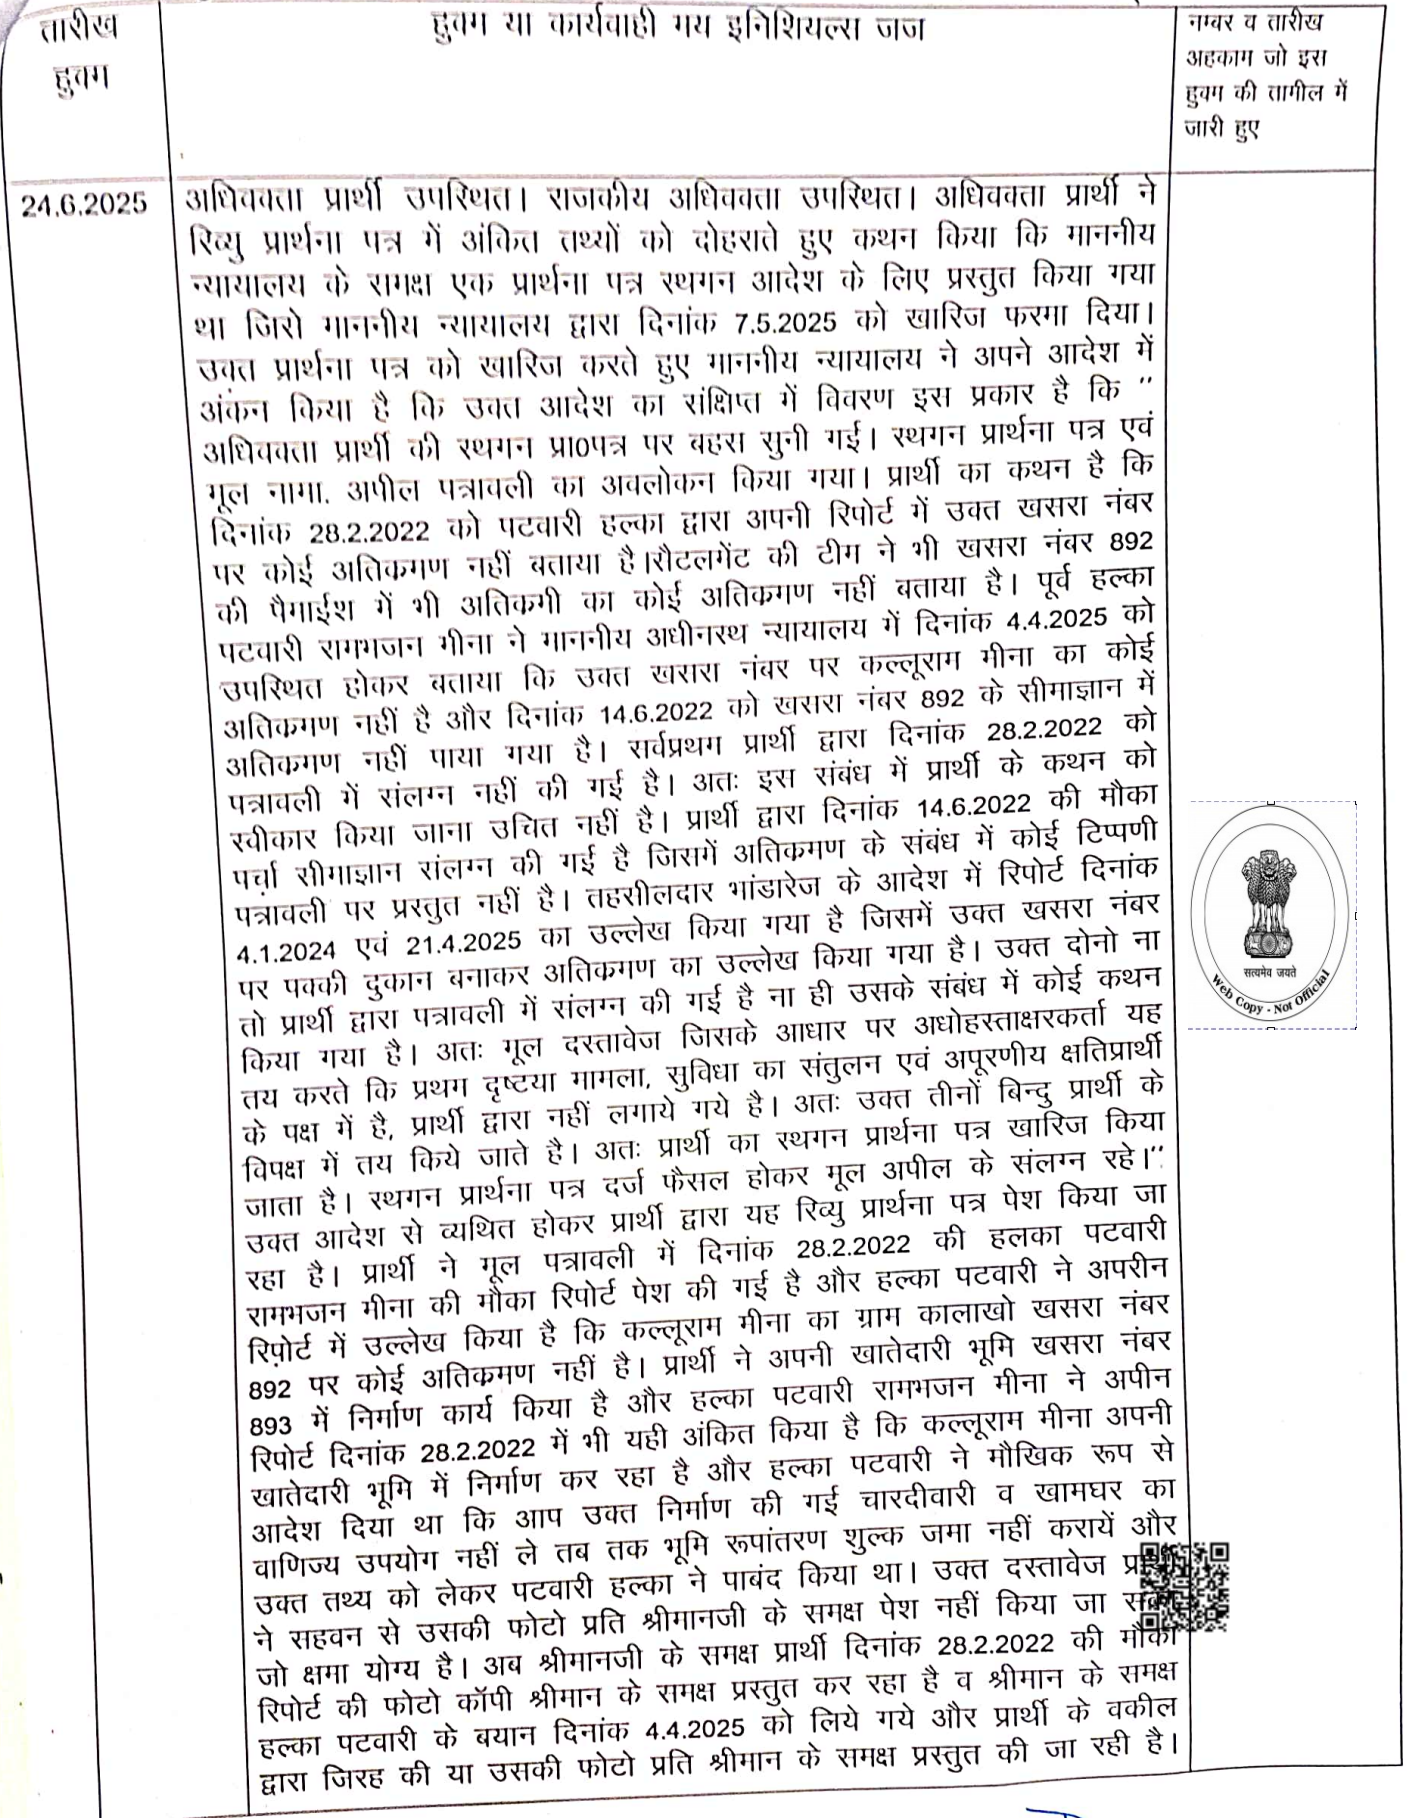 तारीख
हुक्म
हुक्म या कार्यवाही मय इनिशियल्स जज
नम्बर व तारीख
अहकाम जो इस
हुक्म की तामील में
जारी हुए
24.6.2025
अधिवक्ता प्रार्थी उपस्थित। राजकीय अधिवक्ता उपस्थित। अधिवक्ता प्रार्थी ने
रिव्यु प्रार्थना पत्र में अंकित तथ्यों को दोहराते हुए कथन किया कि माननीय
न्यायालय के समक्ष एक प्रार्थना पत्र स्थगन आदेश के लिए प्रस्तुत किया गया
था जिसे माननीय न्यायालय द्वारा दिनांक 7.5.2025 को खारिज फरमा दिया।
उक्त प्रार्थना पत्र को खारिज करते हुए माननीय न्यायालय ने अपने आदेश में
अंकन किया है कि उक्त आदेश का संक्षिप्त में विवरण इस प्रकार है कि ''
अधिवक्ता प्रार्थी की स्थगन प्रा0पत्र पर बहस सुनी गई। स्थगन प्रार्थना पत्र एवं
मूल नामा. अपील पत्रावली का अवलोकन किया गया। प्रार्थी का कथन है कि
दिनांक 28.2.2022 को पटवारी हल्का द्वारा अपनी रिपोर्ट में उक्त खसरा नंबर
पर कोई अतिकमण नहीं बताया है।सैटलमेंट की टीम ने भी खसरा नंबर 892
की पैमाईश में भी अतिकमी का कोई अतिकमण नहीं बताया है। पूर्व हल्का
पटवारी रामभजन मीना ने माननीय अधीनस्थ न्यायालय में दिनांक 4.4.2025 को
उपस्थित होकर बताया कि उक्त खसरा नंबर पर कल्लूराम मीना का कोई
अतिकमण नहीं है और दिनांक 14.6.2022 को खसरा नंबर 892 के सीमाज्ञान में
अतिकमण नहीं पाया गया है। सर्वप्रथम प्रार्थी द्वारा दिनांक 28.2.2022 को
पत्रावली में संलग्न नहीं की गई है। अतः इस संबंध में प्रार्थी के कथन को
स्वीकार किया जाना उचित नहीं है। प्रार्थी द्वारा दिनांक 14.6.2022 की मौका
पर्चा सीमाज्ञान संलग्न की गई है जिसमें अतिकमण के संबंध में कोई टिप्पणी
पत्रावली पर प्रस्तुत नहीं है। तहसीलदार भांडारेज के आदेश में रिपोर्ट दिनांक
4.1.2024 एवं 21.4.2025 का उल्लेख किया गया है जिसमें उक्त खसरा नंबर
पर पक्की दुकान बनाकर अतिकमण का उल्लेख किया गया है। उक्त दोनो ना
तो प्रार्थी द्वारा पत्रावली में संलग्न की गई है ना ही उसके संबंध में कोई कथन
किया गया है। अतः मूल दस्तावेज जिसके आधार पर अधोहस्ताक्षरकर्ता यह
तय करते कि प्रथम दृष्टया मामला, सुविधा का संतुलन एवं अपूरणीय क्षतिप्रार्थी
के पक्ष में है, प्रार्थी द्वारा नहीं लगाये गये है। अतः उक्त तीनों बिन्दु प्रार्थी के
विपक्ष में तय किये जाते है। अतः प्रार्थी का स्थगन प्रार्थना पत्र खारिज किया
जाता है। स्थगन प्रार्थना पत्र दर्ज फैसल होकर मूल अपील के संलग्न रहे।''
उक्त आदेश से व्यथित होकर प्रार्थी द्वारा यह रिव्यु प्रार्थना पत्र पेश किया जा
रहा है। प्रार्थी ने मूल पत्रावली में दिनांक 28.2.2022 की हलका पटवारी
रामभजन मीना की मौका रिपोर्ट पेश की गई है और हल्का पटवारी ने अपरीन
रिपोर्ट में उल्लेख किया है कि कल्लूराम मीना का ग्राम कालाखो खसरा नंबर
892 पर कोई अतिकमण नहीं है। प्रार्थी ने अपनी खातेदारी भूमि खसरा नंबर
893 में निर्माण कार्य किया है और हल्का पटवारी रामभजन मीना ने अपीन
रिपोर्ट दिनांक 28.2.2022 में भी यही अंकित किया है कि कल्लूराम मीना अपनी
खातेदारी भूमि में निर्माण कर रहा है और हल्का पटवारी ने मौखिक रूप से
आदेश दिया था कि आप उक्त निर्माण की गई चारदीवारी व खामघर का
वाणिज्य उपयोग नहीं ले तब तक भूमि रूपांतरण शुल्क जमा नहीं करायें और
उक्त तथ्य को लेकर पटवारी हल्का ने पाबंद किया था। उक्त दस्तावेज
ने सहवन से उसकी फोटो प्रति श्रीमानजी के समक्ष पेश नहीं किया जा
जो क्षमा योग्य है। अब श्रीमानजी के समक्ष प्रार्थी दिनांक 28.2.2022 की मौका
रिपोर्ट की फोटो कॉपी श्रीमान के समक्ष प्रस्तुत कर रहा है व श्रीमान के समक्ष
हल्का पटवारी के बयान दिनांक 4.4.2025 को लिये गये और प्रार्थी के वकील
द्वारा जिरह की या उसकी फोटो प्रति श्रीमान के समक्ष प्रस्तुत की जा रही है।
सत्यमेव जयते
Web Copy - Not Official